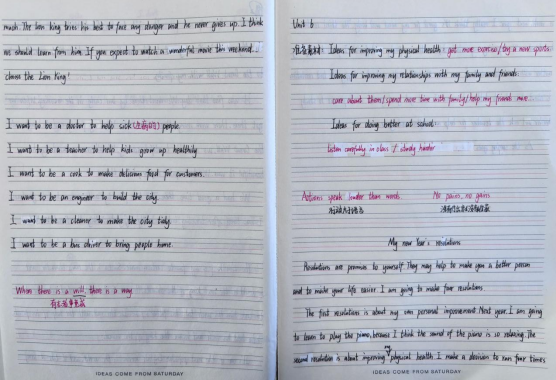 much. The lion king tries his best to face any danger and he never gives up. I think
we should learn from him. If you expect to watch a wonderful movie this weekend...
choose the Lion King!
I want to be a doctor to help sick people
I want to be a teacher to help kids grow up healthily
I want to be a cook to make delicious food for customers.
I want to be an engineer to build the city.
I want to be a cleaner to make the city tidy.
I want to be a bus driver to bring people home.
When there is a will, there is a way.
有志者事竟成
IDEAS COME FROM SATURDAY
Unit 6
Ideas for improving my physical health: get more exercise/try a new sports
Ideas for improving my relationships with my family and friends:
care about them/spend more time with family/help my friends more...
Ideas for doing better at school:
listen carefully in class / study harder
Actions speak louder than words No pains, no gains
My new Year's resolutions
Resolutions are promises to yourself. They may help to make you a better person
and to make your life easier. I am going to make four resolutions
The first resolutions is about my own personal improvement. Next year, I am going
to learn to play the piano, because I think the sound of the piano is so relaxing. The
second resolution is about improving my physical health. I make a decision to run four times
IDEAS COME FROM SATURDAY